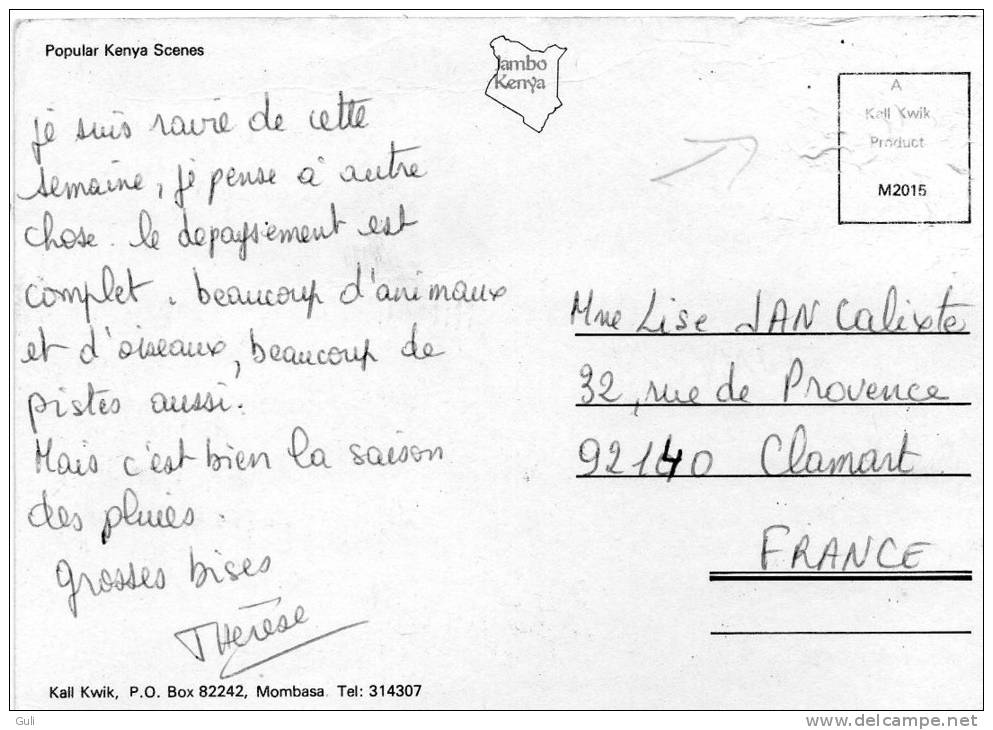 Popular Kenya Scenes
Jambo
Kenya
A
Kall Kwik
Product
M2015
je suis ravie de cette
semaine, je pense à autre
chose. le depaysement est
complet. beaucoup d'animaux
et d'oiseaux, beaucoup de
pistes aussi.
Mais c'est bien la saison
des pluies.
grosses bises
Thérèse
Mme Lise JAN Calixte
32, rue de Provence
92140 Clamart
FRANCE
Kall Kwik, P.O. Box 82242, Mombasa. Tel: 314307
Guli
delcampe.net